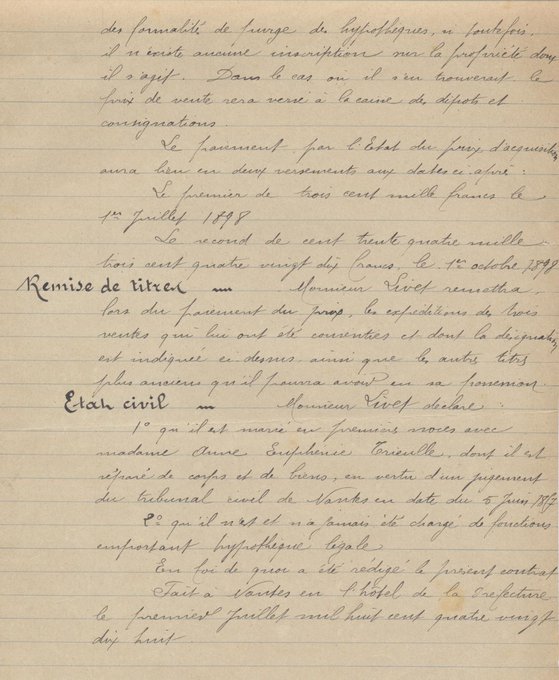 des formalités de purge des hypothèques, si toutefois,
il n'existe aucune inscription sur la propriété dont
il s'agit. Dans le cas où il s'en trouverait le
prix de vente sera versé à la caisse des dépots et
consignations.
Le paiement par l'Etat du prix d'acquisition
aura lieu en deux versements aux dates ci-après :
Le premier de trois cent mille francs le
1er Juillet 1898
Le second de cent trente quatre mille
trois cent quatre vingt dix francs, le 1er octobre 1898
Remise de titres Monsieur Livet remettra,
lors du paiement du prix, les expéditions des trois
ventes qui lui ont été consenties et dont la désignation
est indiquée ci-dessus ainsi que les autres titres
plus anciens qu'il pourra avoir en sa possession
Etat civil Monsieur Livet déclare :
1° qu'il est marié en premières noces avec
madame Anne Euphénie, dont il est
séparé de corps et de biens, en vertu d'un jugement
du tribunal civil de Nantes en date du 5 Juin
2° qu'il n'est et n'a jamais été chargé de fonctions
emportant hypothèque légale
En foi de quoi a été rédigé le présent contrat
Fait à Nantes en l'hôtel de la Préfecture
le premier Juillet mil huit cent quatre vingt
dix huit.